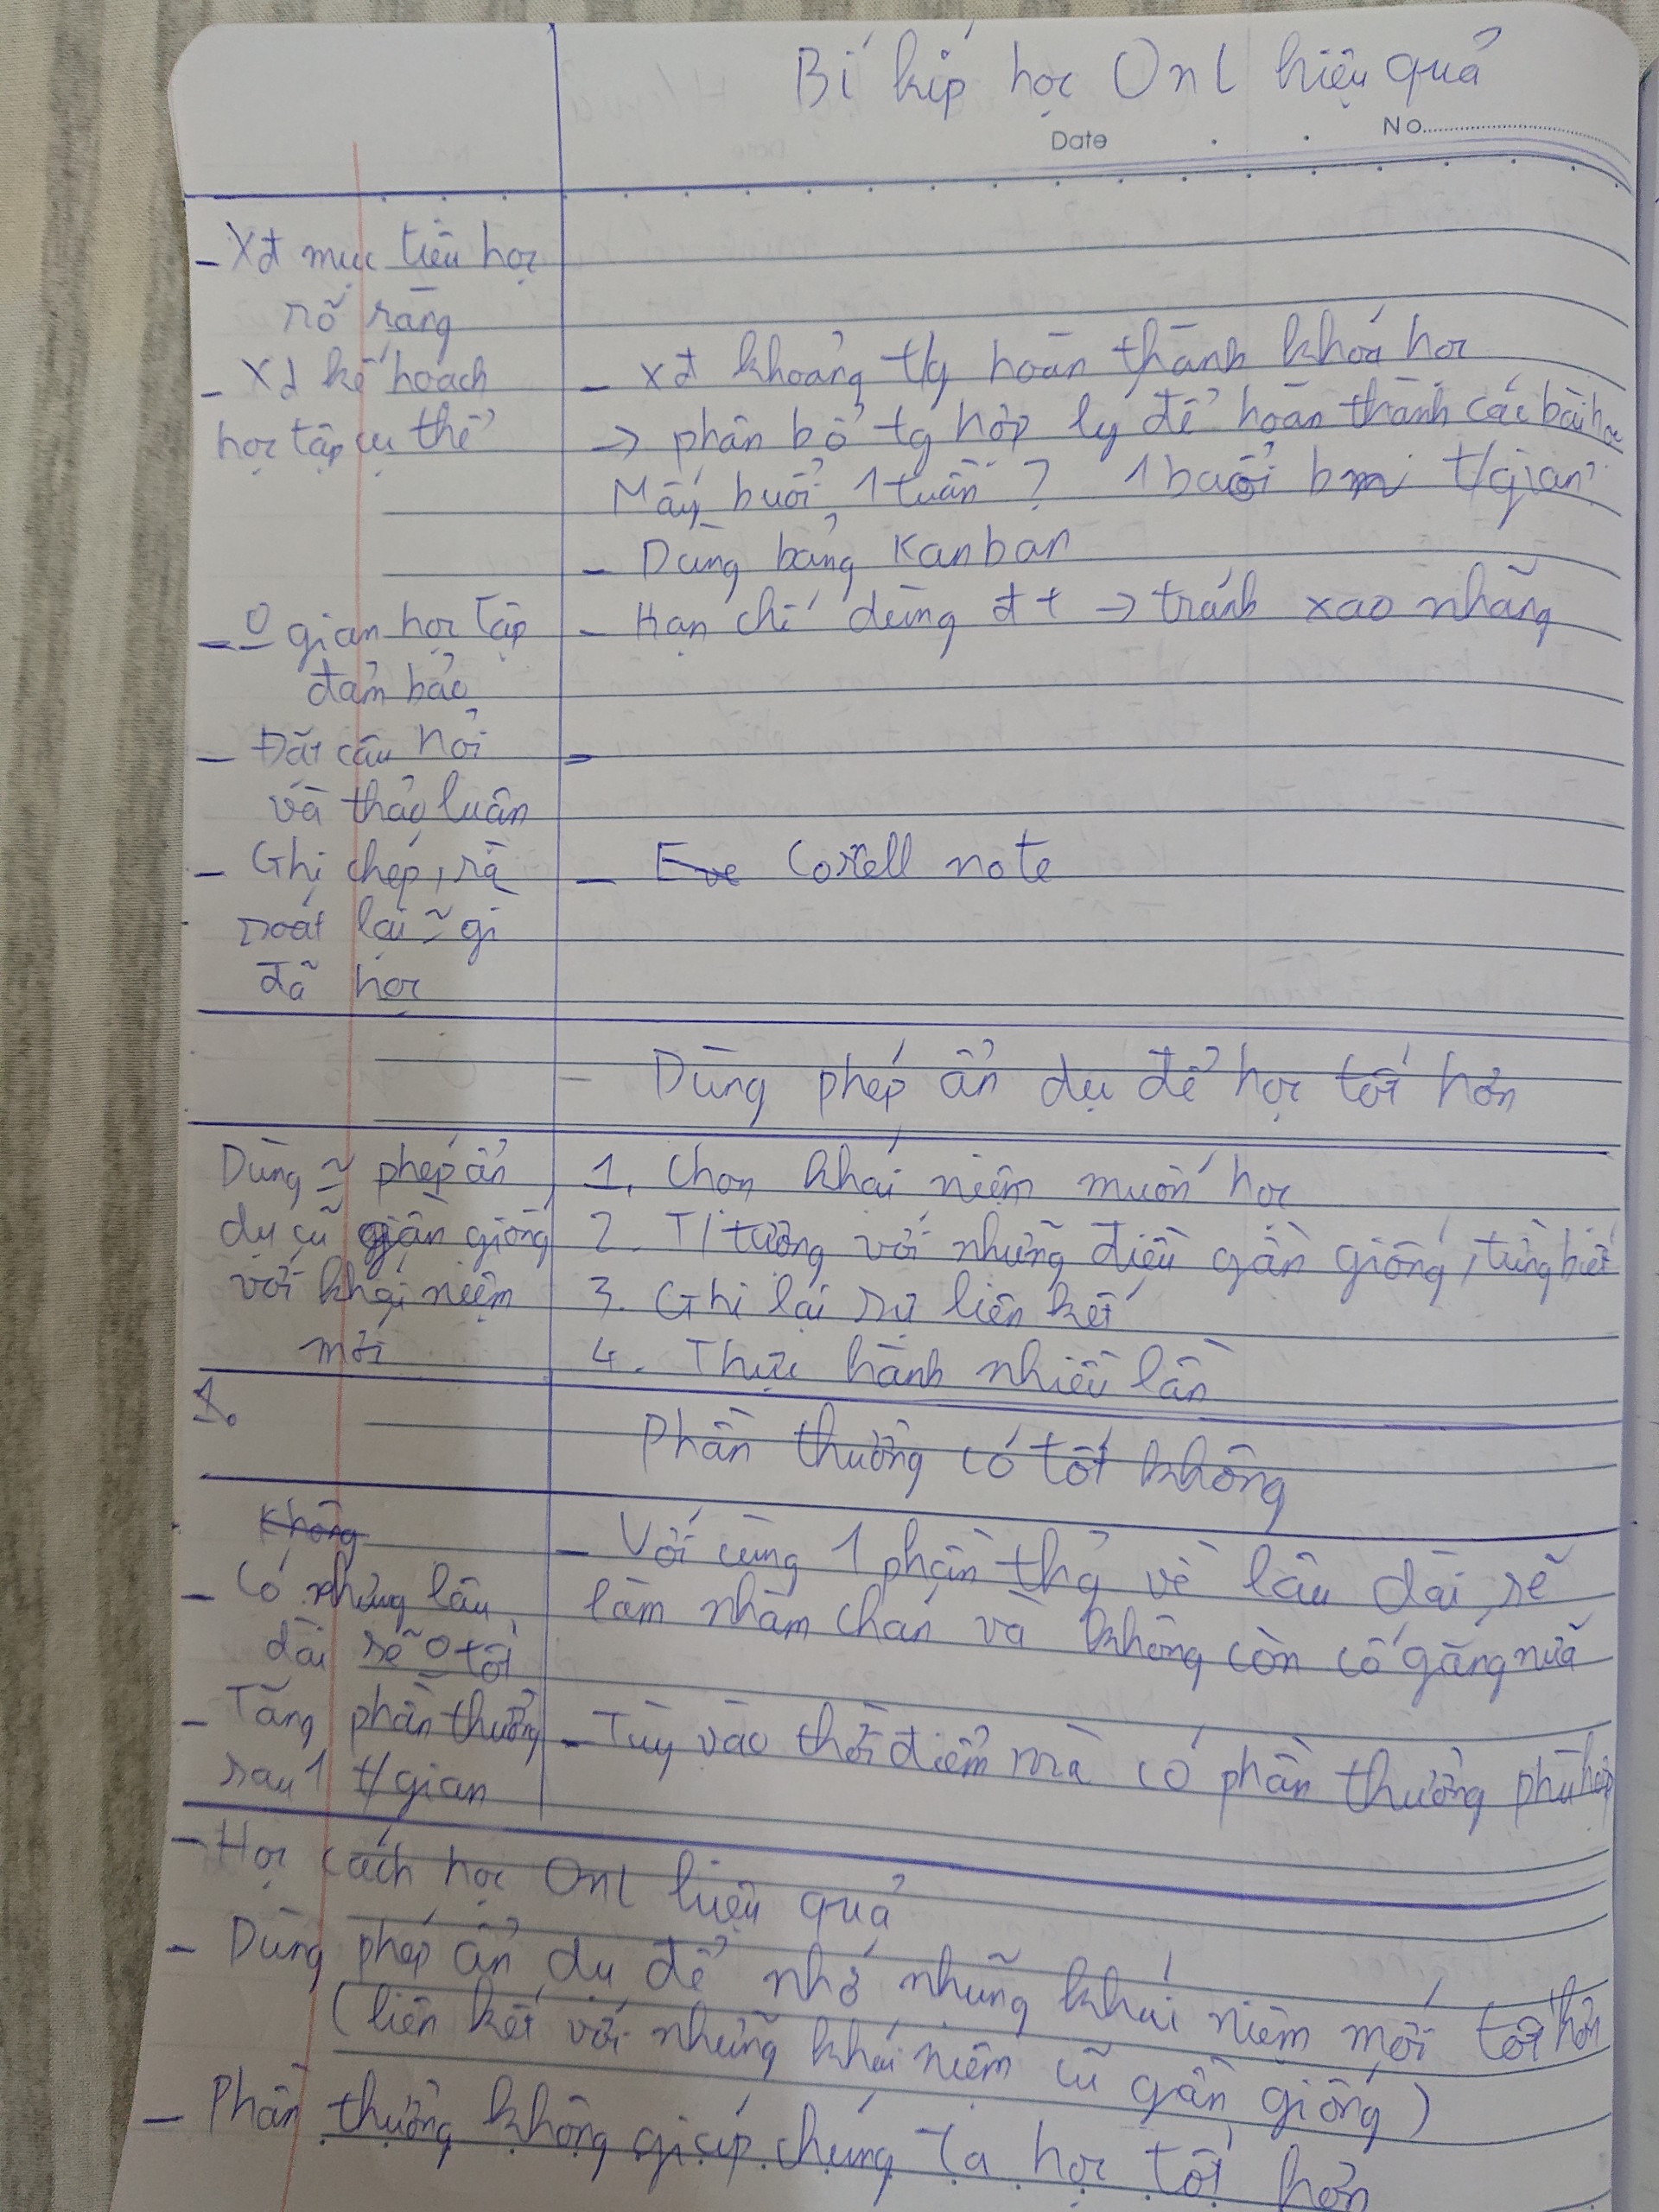 Bí kíp học Onl hiệu quả
Date
No
- Xđ mục tiêu học
rõ ràng
- Xđ kế hoạch
học tập cụ thể
- xđ khoảng t/g hoàn thành khoá học
→ phân bổ tg hợp lý để hoàn thành các bài học
Mấy buổi 1 tuần ? 1 buổi bn t/gian?
- Dùng bảng Kanban
- O gian học tập
đảm bảo
- Hạn chế dùng đt → tránh xao nhãng
- Đặt câu hỏi
và thảo luận
-
- Ghi chép, rà
soát lại ~ gì
đã học
- Eve Corell note
Dùng phép ẩn dụ để học tốt hơn
Dùng ~ phép ẩn
dụ cũ gần giống
với khái niệm
mới
1. Chọn khái niệm muốn học
2. T/tượng với những điều gần giống, từng biết
3. Ghi lại sự liên kết
4. Thực hành nhiều lần
1.
Phần thưởng có tốt không
Không
- Có nhưng lâu
dài sẽ O tốt
- Với cùng 1 phần thg về lâu dài sẽ
làm nhàm chán và không còn cố gắng nữa
- Tăng phần thưởng
sau 1 t/gian
- Tùy vào thời điểm mà có phần thưởng phù hợp
- Học cách học Onl hiệu quả
- Dùng phép ẩn dụ để nhớ những khái niệm mới tốt hơn
(liên kết với những khái niệm cũ gần giống)
- Phần thưởng không giúp chúng ta học tốt hơn